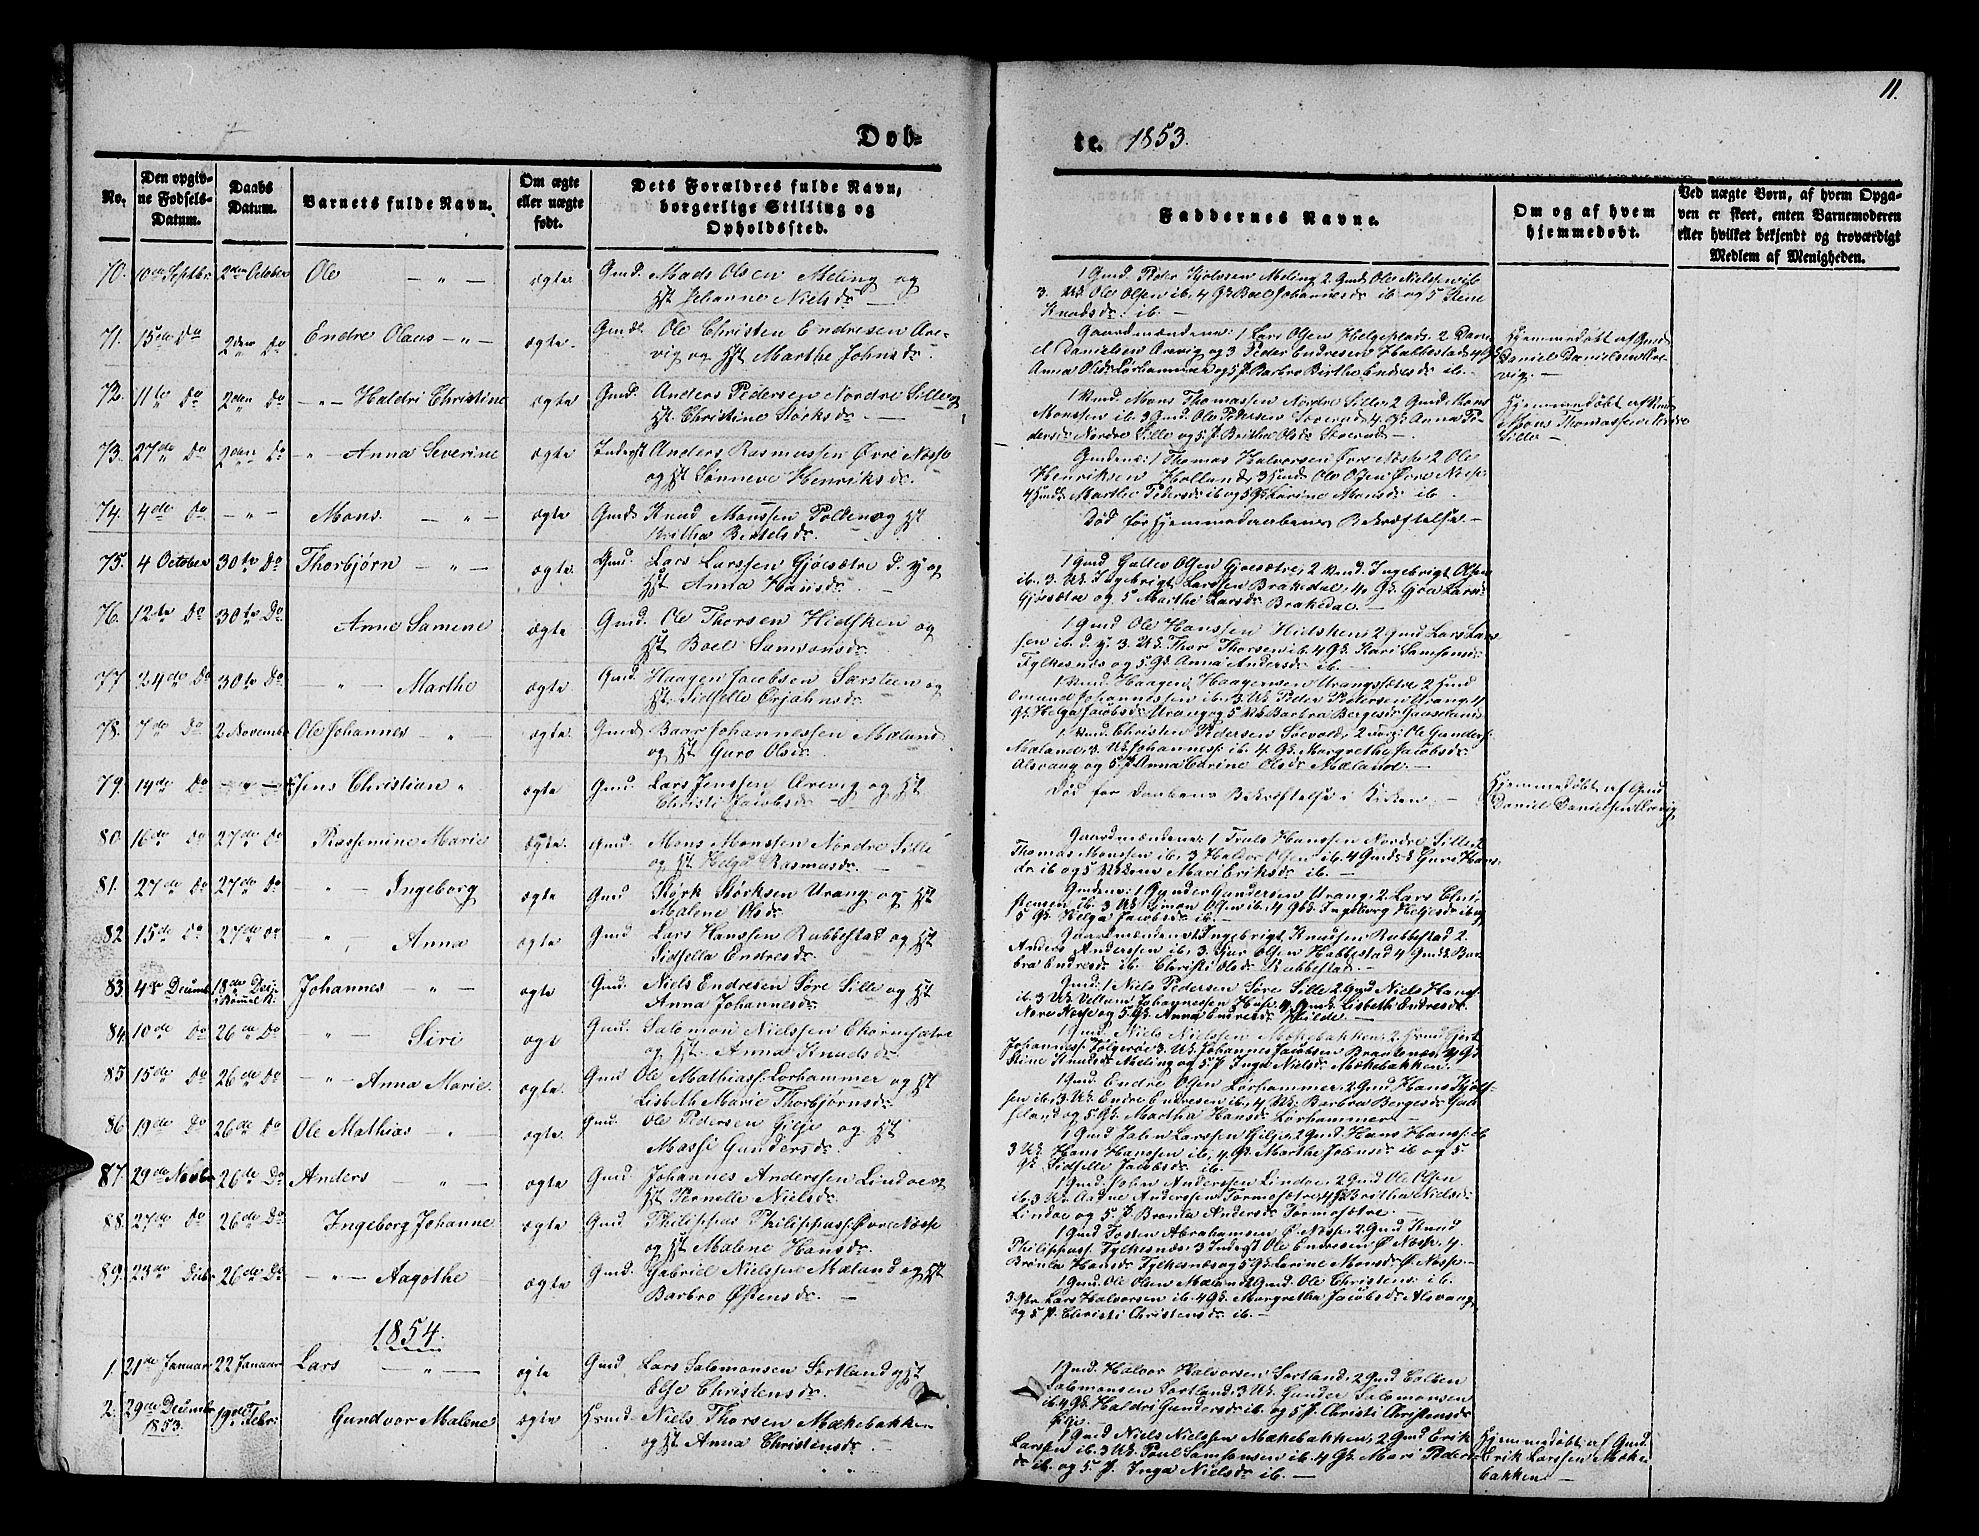 11.
Døb-
te. 1853.
No.
Den opgiv-
ne Fødsels-
Datum.
Daabs
Datum.
Barnets fulde Navn.
Om ægte
eller uægte
født.
Dets Forældres fulde Navn,
borgerlige Stilling og
Opholdssted.
Faddernes Navne.
Om og af hvem
hjemmedøbt.
Ved uægte Børn, af hvem Opga-
ven er skeet, enten Barnemoderen
eller hvilket bekjendt og troværdigt
Medlem af Menigheden.
70. 10de Septbr 2den October Ole — " — ægte. Gmd. Mads Olsen Meling og
Hst Johanne Nielsdr. —
1 Gmd. Peder Olsen Meling 2 Gmd. Ole Nielsen ib
3. Uk. Ole Olsen ib. 4 Gk. Boel Johannesdr ib og 5
Knudsdr. ib. —
71. 15de Do 2den Do Endre Olaus — " — ægte. Gmd. Ole Christen Endresen Are-
vig og Hst Marthe Johnsdr.
Gaardmændene: 1 Lars Olsen Helgeplads. 2 Dani-
el Danielsen Arevig og 3 Peder Endresen
Anna Olsdr Lørhammer og 5 P. Barbro Birthe Endresdr ib. —
Hjemmedøbt af Gmd
Daniel Danielsen Are-
vig. —
72. 11te Do 2den Do — " — Haldri Christine ægte Gmd. Anders Pedersen Nordre Sille og
Hst. Christine Størksdr. —
1 Gmd. Mons Thomassen Nordre Sille, 2 Gmd Mons
Monssen ib 3 Gmd. Ole Pedersen 4 Gk Anna Pe-
dersdr Nordre Sille og 5 P. Britha Olsdr —
Hjemmedøbt af
Mons Thomassen Nordre
Sille —
73. 27de Do 2den Do " — Anna Severine ægte Inderst Anders Rasmussen Øvre Næsse
og Hst Sønneve Henriksdr.
Gmdene: 1 Thomas Halvorsen Øvre Næsse 2 Ole
Henriksen Holland 3 Ole Olsen Øvre Næsse
4 Marthe Pedersdr ib og 5 Gk Karine Monsdr ib
74. 4de Do — " — Mons. — " — ægte Gmd. Knud Monssen Polden og Hst
Britha Bertelsdr.
Død før Hjemmedaabens Bekræftelse —
75. 4 October 30te Do Thorbjørn — " — ægte. Gmd. Lars Larssen Gjøesætre d. y og
Hst Anna Hansdr. —
1 Gmd Galle Olsen Gjøesætre, 2 Gmd. Ingebrigt Olsen
ib. 3. Uk. Ingebrigt Larssen Brakedal, 4 Gk. Gjøra Lars-
Gjøsætre og 5 Marthe Larsdr Brakedal. —
76. 12te Do 30te Do Anne Samine ægte Gmd. Ole Thorsen Hidsken og
Hst Boel Samsonsdr.
1 Gmd Ole Hanssen Hidsken, 2 Gmd Lars Lars-
sen ib. d. y. 3. Uk. Thor Thorsen ib. 4 Gk. Kari Samsonsdr
Fylkesnæs og 5 Gk. Anna Andersdr ib. —
77 24de Do 30te Do — " — Marthe ægte Gmd. Haagen Jacobsen Sørsteen og
Hst. Sidselle Ørjahnsdr.
1 Gmd. Haagen Haagensen Urangsætre 2
Omund Johannessen ib. 3. Uk Peder Pedersen Urang 4
Gk. Helga Jacobsdr Urang og 5 Uk Barbra Bergesdr
78. 7de Do 2 Novembr Ole Johannes — " ægte. Gmd. Baar Johannessen Mæland
og Hst Guro Olsdr.
1 Gmd. Christen Pedersen 2 Ole Gunders
Mæland 3. Uk Johanness. ib. 4. Gk. Margrethe Jacobsdr.
Alsvaag og 5. P. Anna Carine Olsdr Mæland. —
79. 14de Do — " — Jens Christian " ægte Gmd. Lars Jenssen Arevig og Hst
Christi Jacobsdr —
Død før Daabens Bekræftelse i Kirken —
Hjemmedøbt af Gmd
Daniel Danielsen Arevig
80. 16de Do 27de Do Rossemine Marie ægte. Gmd. Mons Monssen Nordre Sille
og Hst Helga Rasmusdr.
Gaardmændene: 1 Truls Hanssen Nordre Sille 2
Thomas Monssen ib. 3 Halvor Olsen ib. 4 Gmdsk Guri Hans-
dr. ib og 5 Marie Eriksdr ib. —
81. 27de Do 27de Do — " — Ingeborg ægte Gmd Størk Størksen Urang og Hst
Malene Olsdr.
Gmdene: 1 Gunder Gundersen Urang; 2 Lars
ib. 3 Uk Simon Olsen ib, 4 Gk. Ingeborg Helgesdr ib og
5 Gk. Helga Jacobsdr ib. —
82 15de Do 27de Do " — Anna ægte Gmd Lars Hanssen Rabbestad og Hst
Sidsella Endresdr.
Gaardmændene: 1 Ingebrigt Knudsen Rabbestad 2.
Anders Anderssen ib, 3. Sjur Olsen Habbestad 4 Gmdsk Bar-
bra Endresdr ib. Christi Olsdr Rabbestad. —
83. 4de Decemb 18de Dec. i Bømmel K. Johannes — " — ægte Gmd. Niels Endresen Søre Sille og Hst
Anna Johannesdr.
Gmd: 1 Niels Pedersen Søre Sille 2 Gmd Niels Hans-
ib. 3 Uk Villum Johannessen 4 Gmds Lisbeth Endresdr
Nore Næsse og 5 Gk. Anna Endresdr —
84. 10de Do 26de Do " — Siri ægte Gmd. Salomon Nielssen Ekornsætre
og Hst. Anna Knudsdr. —
1 Gmd. Niels Nielssen Mækebakken 2
Johanness. 3. Uk. Johannes Jacobsen 4 Gk
Stine Knudsdr Meling og 5 P. Inga Nielsdr Mækebakken.
85 15de Do 26de Do " — Anna Marie. ægte. Gmd Ole Mathiass. Lørhammer og Hst
Lisbeth Marie Thorbjørnsdr.
1 Gmd. Endre Olsen Lørhammer, 2 Gmd Hans
sen ib, 3 Uk. Endre Endresen ib, 4 Uk. Barbra Bergesdr
og 5 Gk. Martha Hansdr Lørhammer —
86 19de Do 26de Do Ole Mathias — " — ægte. Gmd. Ole Pedersen Gilje og Hst
Massi Gundersdr. —
1 Gmd John Larssen Gilje; 2 Gmd. Hans Hanss. ib
3 Uk. Hans Hanssen ib, 4 Gk. Marthe Johnsdr ib og 5.
Gk. Sidselle Jacobsdr ib. —
87. 29de Novbr 26de Do Anders — " — ægte Gmd. Johannes Anderssen Lindøe og
Hst Pernille Nielsdr.
1 Gmd. John Anderssen Lindøe, 2 Gmd Ole Olsen
ib, 3 Uk. Aadne Anderssen Tormosætre, 4 Britha Nielsdr
Lindøe og 5. P. Brønla Andersdr Tormosætre. —
88. 27de Do 26de Do. Ingeborg Johanne ægte Gmd. Philippus Philippuss. Øvre Næsse
og Hst Malene Hansdr.
1 Gmd Tosten Abrahamsen Ø. Næsse, 2 Gmd Knud
Philippuss. Fylkesnæs, 3 Inderst Ole Endresen Ø Næsse, 4.
Brønla Hansdr Fylkesnæs og 5 Gk Karine Monsdr Ø. Næsse —
89. 23de Debr 26de Do — " — Aagothe ægte Gmd. Gabriel Nielssen Mæland og Hst
Barbro Østensdr. —
1 Gmd. Ole Olsen Mæland 2 Gmd. Ole Christens. ib.
3 Lars Halvorsen ib. 4 Gk. Margretha Jacobsdr Alsvaag
og 5 P. Christi Christensdr ib. —
1854.
1. 21de Januar 22 Januar Lars — " — ægte Gmd. Lars Salomonsen Sortland og Hst
Else Christensdr.
1 Gmd. Halvor Halvorsen Sortland; 2 Gmd
Salomonsen Sortland; 3 Uk. Gunder Salomonsen
ib. 4 Gk. Haldri Gundersdr ib. og 5 P. Christi Christensdr
Gilje. —
2. 29de Decembr 1853. 19de Febr. Gundvor Malene ægte Hsmd. Niels Thorsen Mækebakken
og Hst Anna Christensdr. —
1 Gmd Niels Nielssen Mækebakken; 2 Gmd Erik
Larssen ib. 3 Uk. Poul Samsonsen ib. 4 Gk. Mari Peders-
dr ib. og 5. P. Inga Nielsdr ib. —
Hjemmedøbt af Gmd.
Erik Larssen Mæke
bakken —